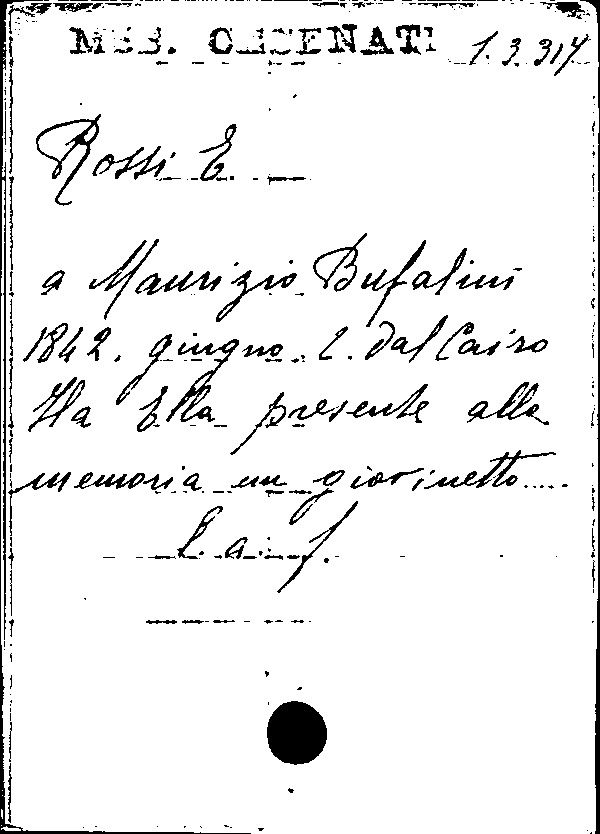 MSS. CESENATI 1.3.317
Rossi E.
a Maurizio Bufalini
1842. giugno. 2. dal Cairo
Ha Ella presente alla
memoria un giovinetto....
L. a. f.